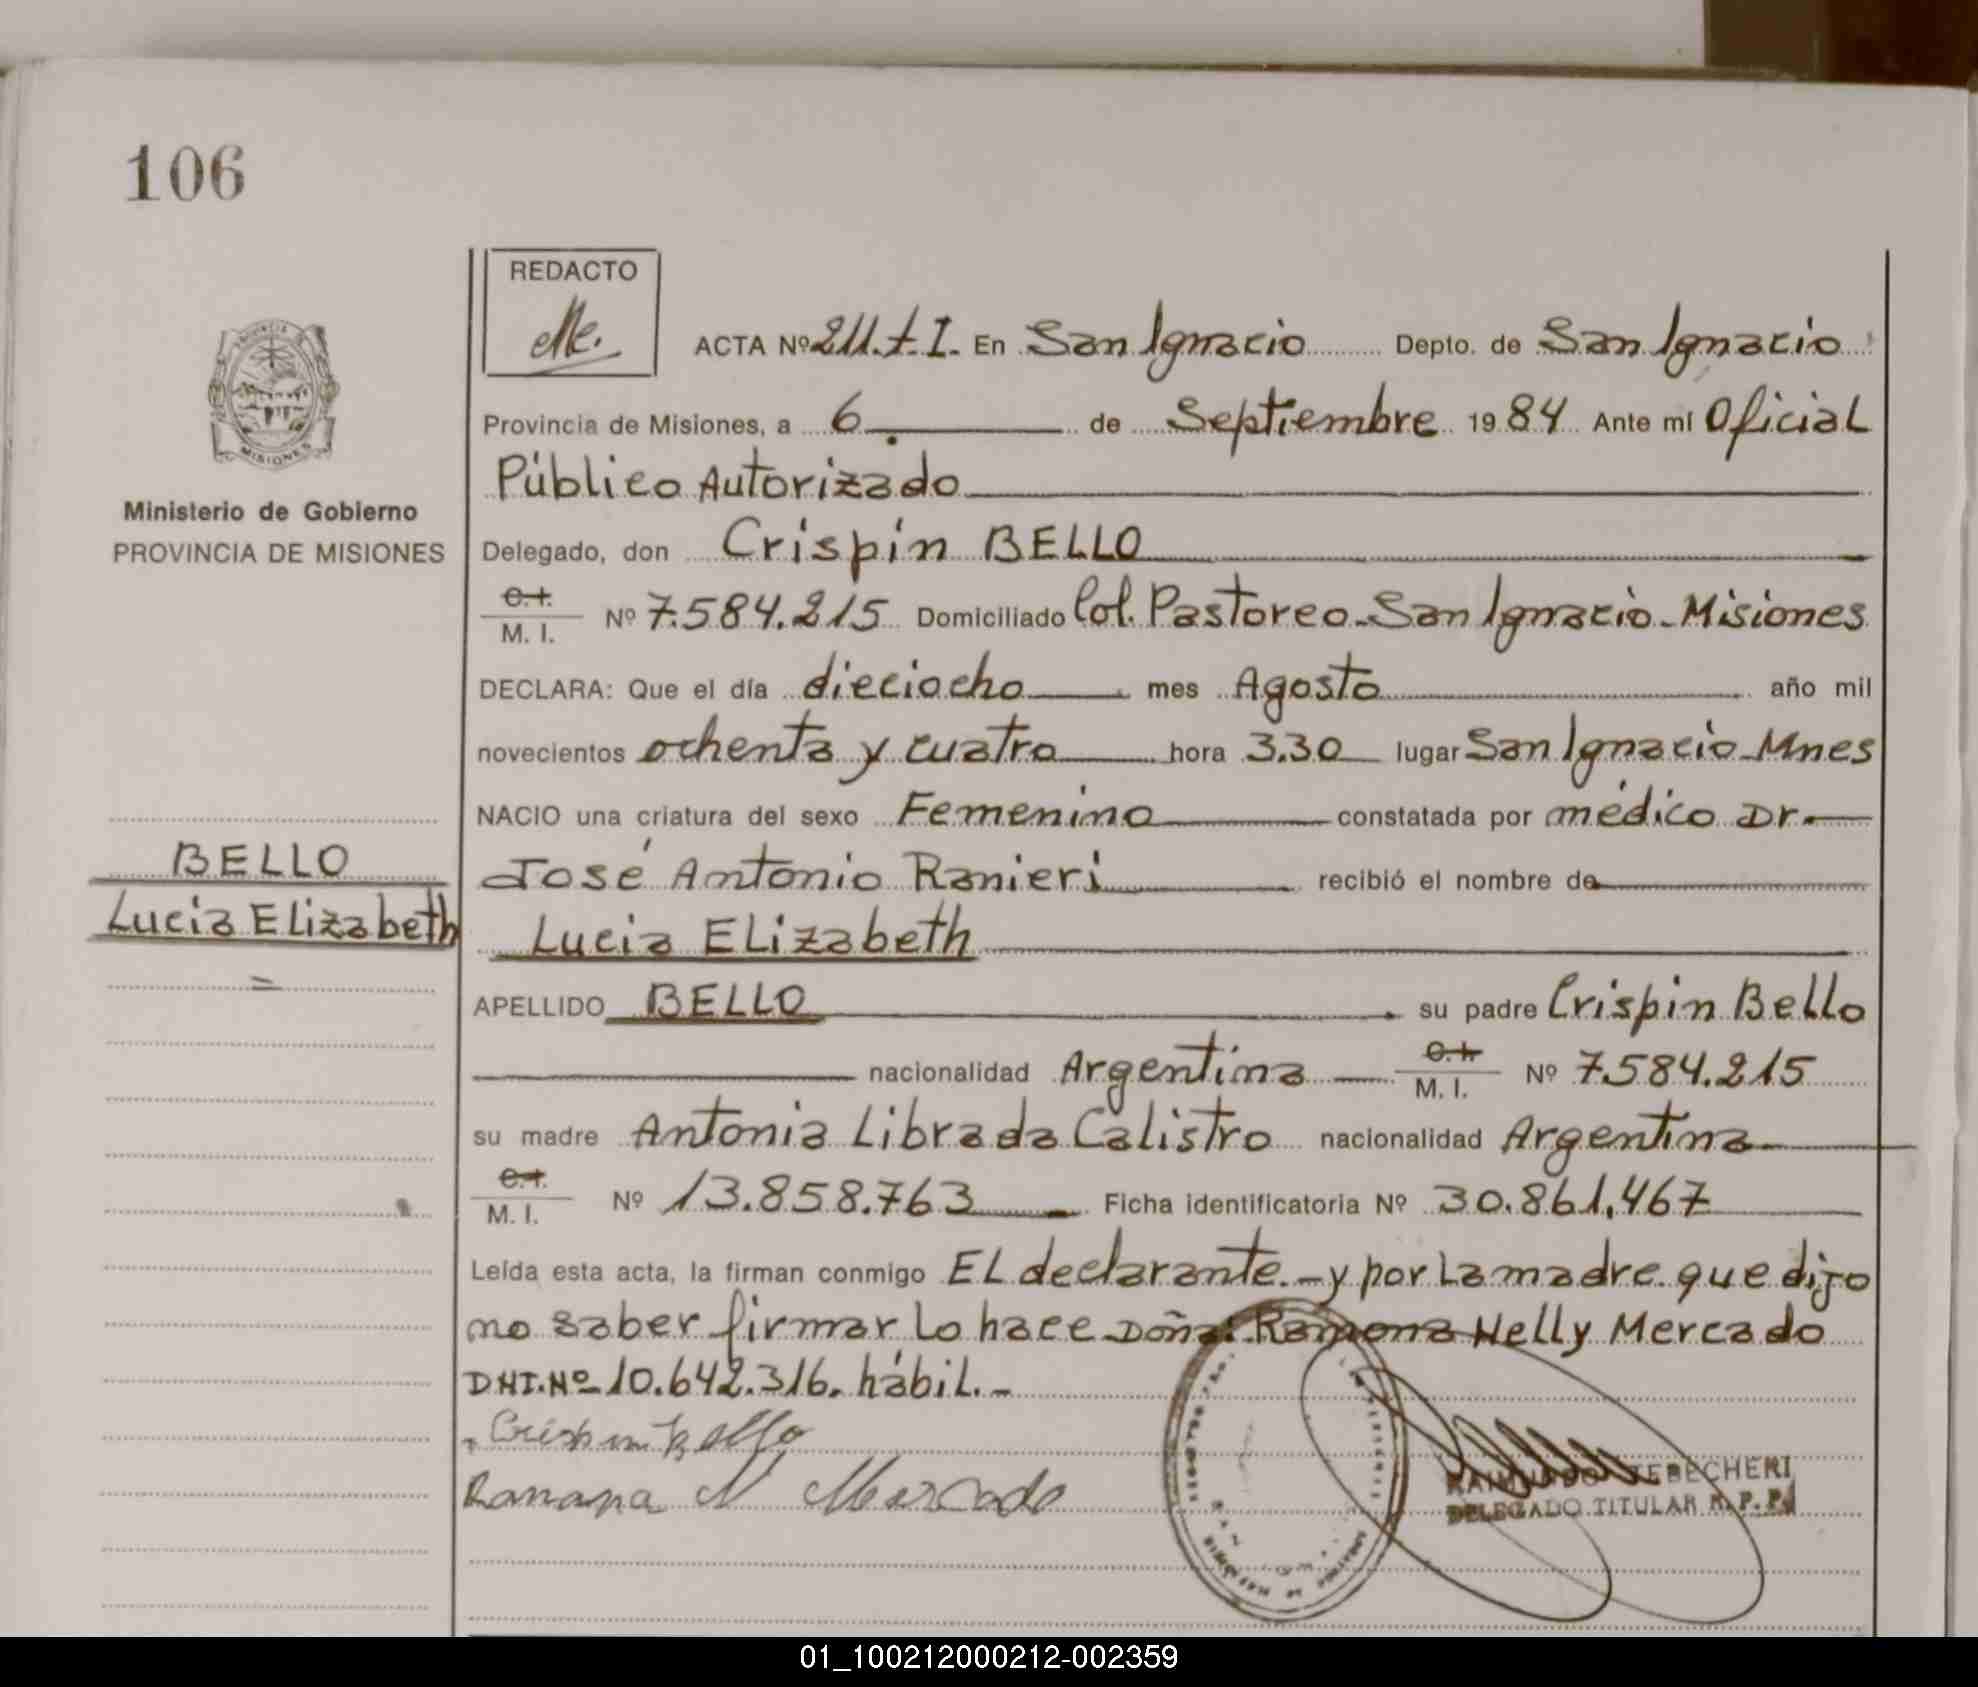 106
REDACTO
ACTA Nº 211.t.I. En San Ignacio Depto. de San Ignacio
Provincia de Misiones, a 6 de Septiembre 1984 Ante mí Oficial
Público Autorizado
Ministerio de Gobierno
PROVINCIA DE MISIONES
Delegado, don Crispín BELLO
C. I.
M. I. Nº 7.584.215 Domiciliado Col. Pastoreo - San Ignacio - Misiones
DECLARA: Que el día dieciocho mes Agosto año mil
novecientos ochenta y cuatro hora 3.30 lugar San Ignacio - Mnes
NACIO una criatura del sexo Femenino constatada por médico Dr.
BELLO
José Antonio Ranieri recibió el nombre de
Lucia Elizabeth
Lucia Elizabeth
APELLIDO BELLO su padre Crispín Bello
nacionalidad Argentina C. I.
M. I. Nº 7.584.215
su madre Antonia Librada Calistro nacionalidad Argentina
C. I.
M. I. Nº 13.858.763 Ficha identificatoria Nº 30.861.467
Leída esta acta, la firman conmigo El declarante.- y por la madre que dijo
no saber firmar lo hace Doña: Ramona Nelly Mercado
DNI. Nº 10.642.316. hábil.-
Crispin Bello
Ramona N Mercado
RAIMUNDO TEBECHERI
DELEGADO TITULAR R. P. P.
01_100212000212-002359